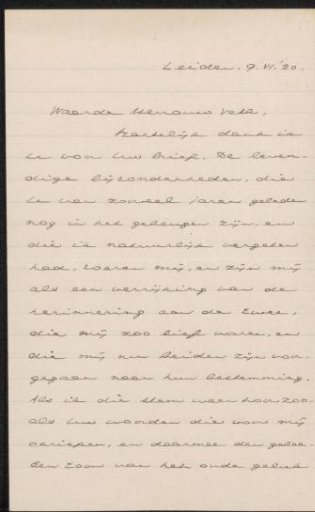 Leiden. 9.VI.'20.
Waarde Mevrouw Veth,
Hartelijk dank ik
U voor Uw brief. De leven-
dige bijzonderheden, die
U van zooveel jaren geleden
nog in het geheugen zijn, en
die ik natuurlijk vergeten
had, waren mij, en zijn mij
als een verrijking van de
herinnering aan de twee,
die mij zoo lief waren, en
die mij nu beiden zijn voor-
gegaan naar hun bestemming.
Als ik die stem weer hoor, zoo-
als Uw woorden die voor mij
opriepen, en daarmee den
Een toon van het oude geluk